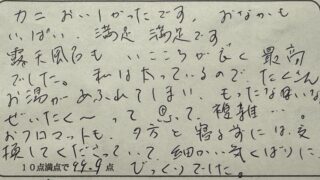 カニ おいしかったです。 おなかも
いっぱい。満足 満足です
露天風呂も いごこちが良く 最高
でした。 私は太っているので たくさん
お湯があふれてしまい、もったないな
ぜいたく〜 って 思って、複雑…。
おフロマットも、夕方と寝る前には、交
換してくださっていて 細かい気くばりに
10点満点で99.9点 びっくりでした。